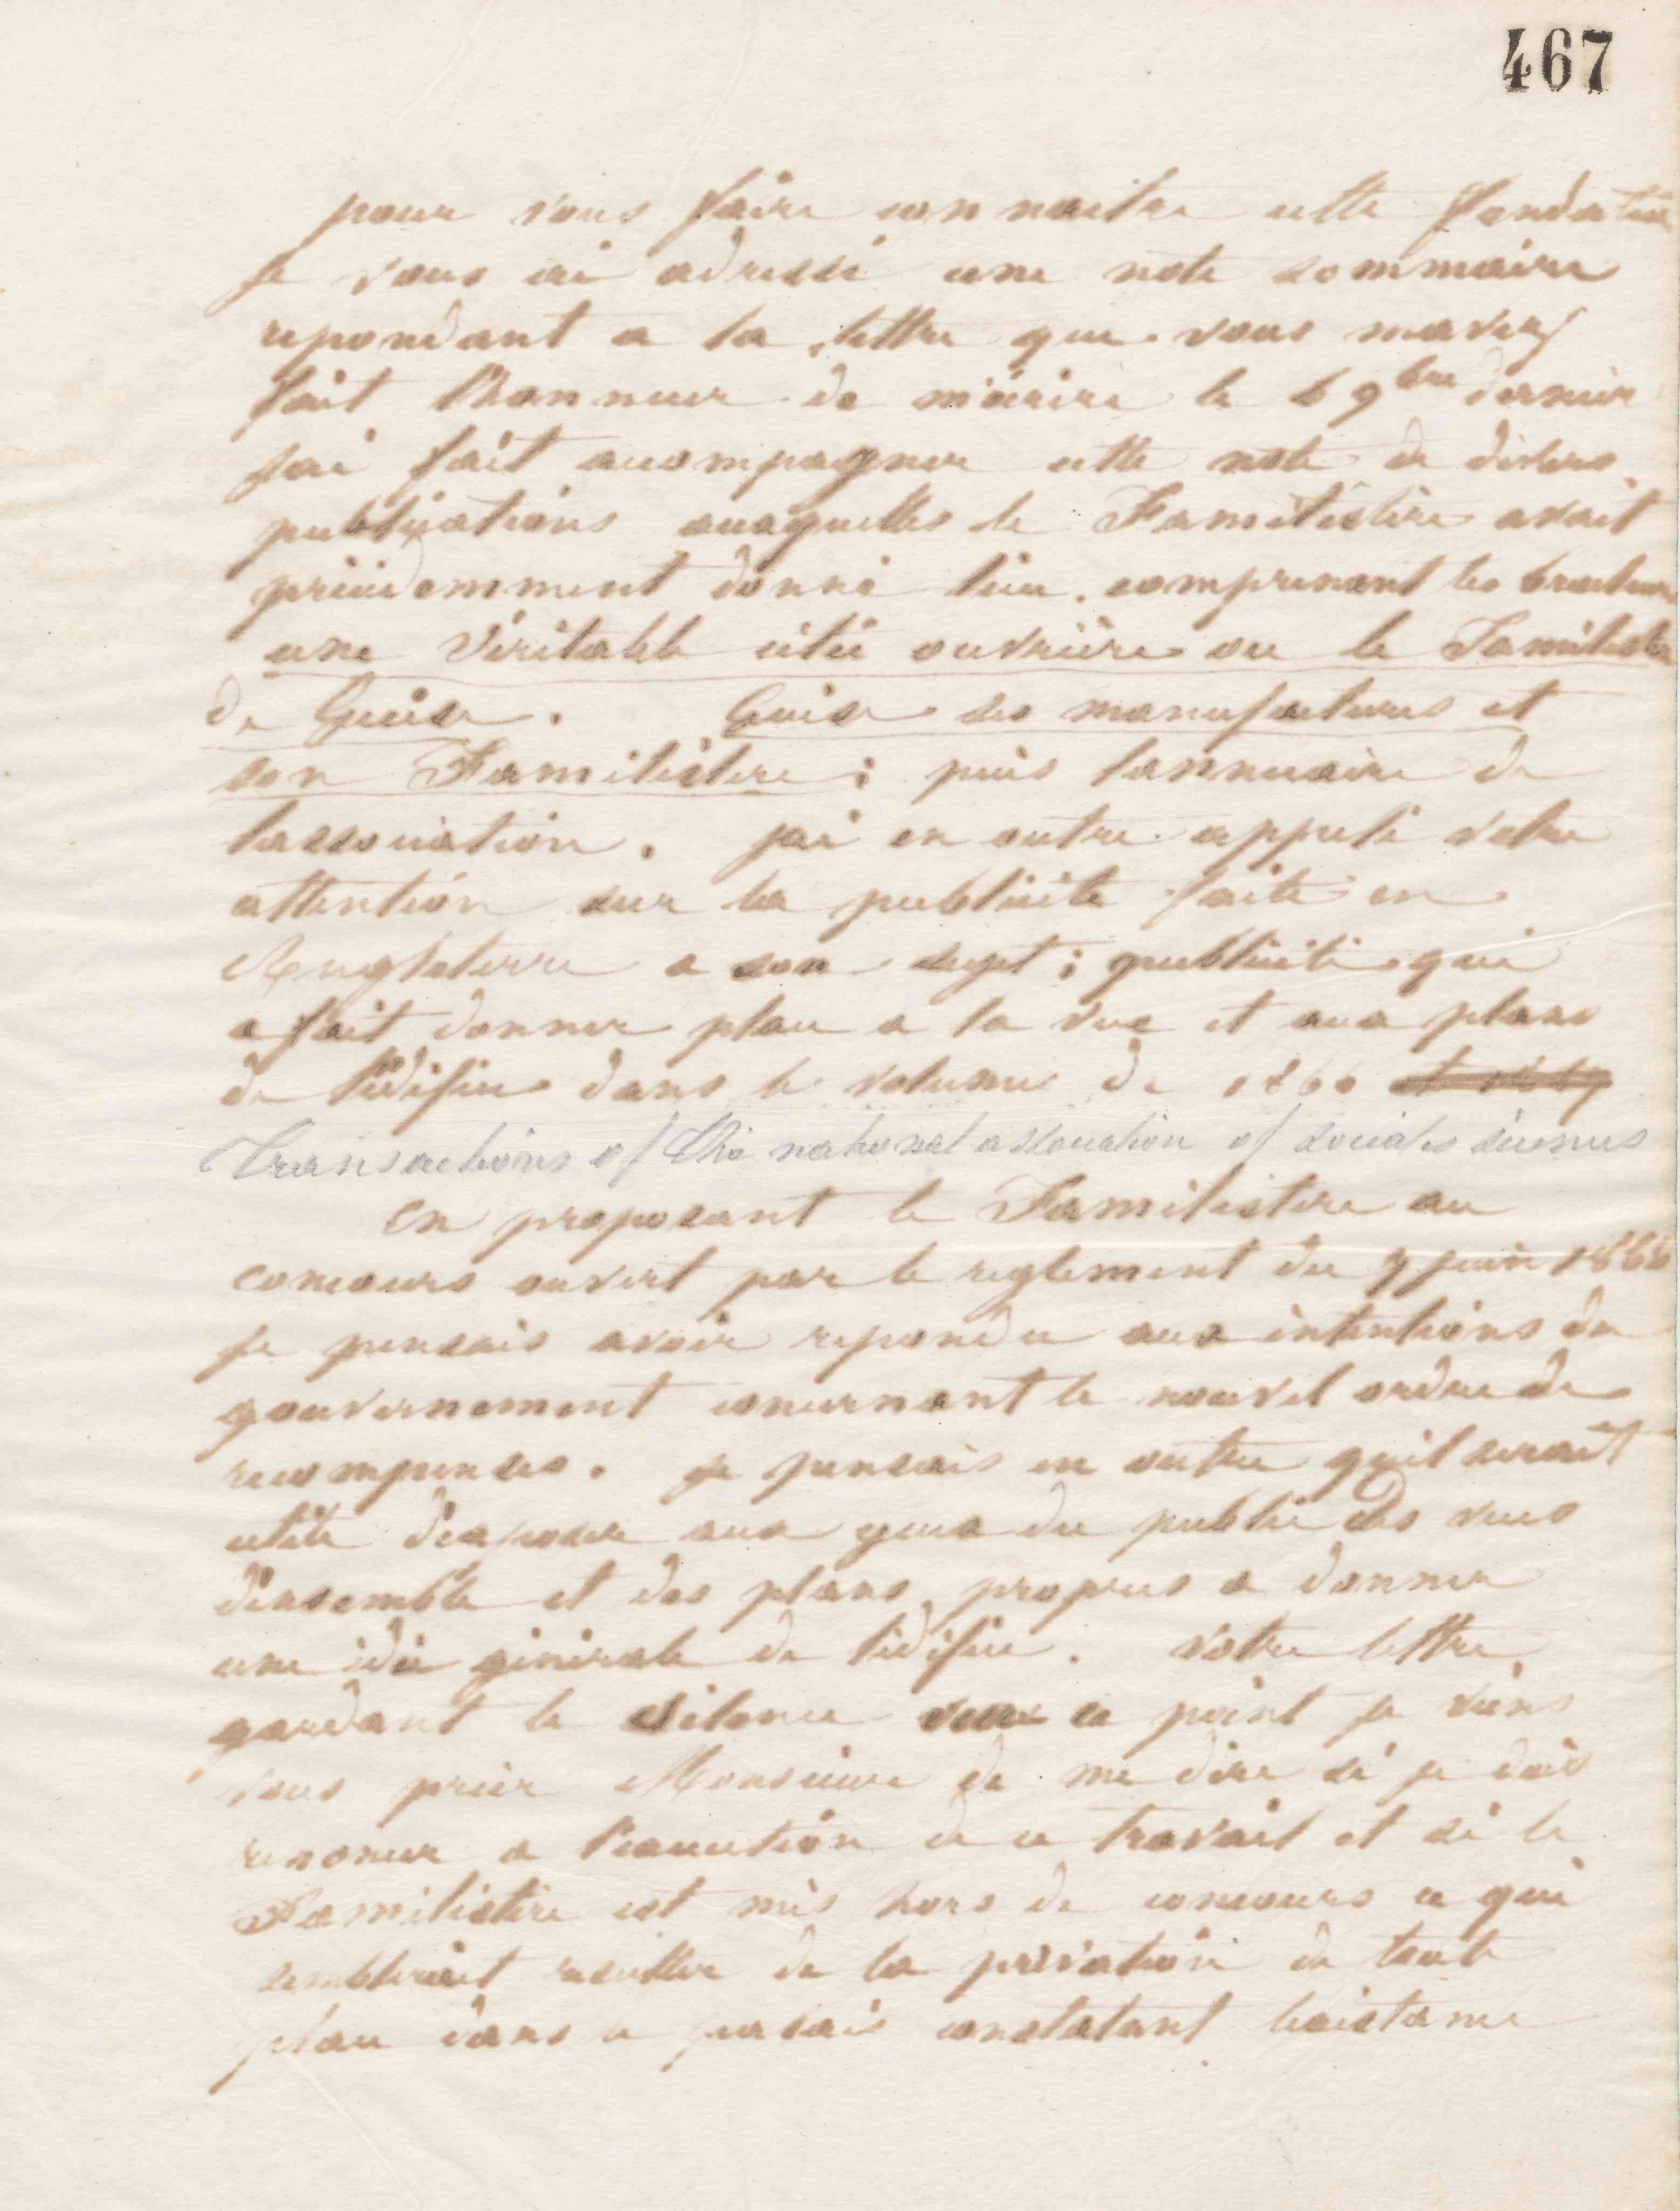 467
pour vous faire connaitre cette fondation
je vous ai adressé une note sommaire
repondant a la lettre que vous mavez
fait l'honneur de m'écrire le 6 9bre dernier
jai fait accompagner cette note de divers
publications auxquelles le Familistère avait
précédemment donné lieu. comprenant les brochures
une véritable cité ouvrière ou le Familistère
de Guise. Guise ses manufactures et
son Familistère ; puis lannuaire de
lassociation. jai en outre appelé votre
attention sur la publicité faite en
Angleterre a son sujet ; publicité qui
a fait donner place a la vue et aux plans
de l'édifice dans le volume de 1866
Transactions of the national association of sociales siences
En proposant le Familistere au
concours ouvert par le reglement du 7 juin 1866
je pensais avoir repondu aux intentions du
gouvernement concernant le nouvel ordre de
recompenses. je pensais en outre quil serait
utile d'exposer aux yeux du public des vues
d'ensemble et des plans propres a donner
une idée générale de l'édifice. Votre lettre
gardant le silence sur ce point je viens
vous prier Monsieur de me dire si je dois
renoncer a l'execution de ce travail et si le
Familistère est mis hors de concours ce qui
semblerait resulter de la privation de toute
place dans le constatant lexistance